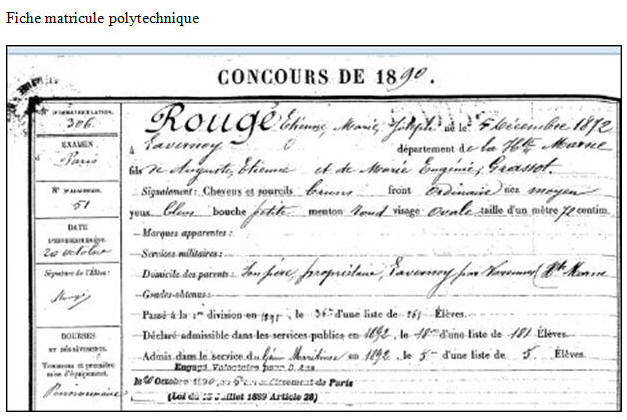 Fiche matricule polytechnique
CONCOURS DE 1890.
N° D'IMMATRICULATION.
306
EXAMEN
à Paris
51
DATE
20 octobre
Signature de l'Élève:
Rougé
BOURSES
ET DÉGRÈVEMENTS.
Trousseau et première
mise d'équipement.
Pensionnaire
Rougé Etienne, Marie, Joseph né le 5 décembre 1872
à Lavernoy département de la Hte Marne
fils de Auguste, Etienne et de Marie Eugénie, Grassot.
Signalement: Cheveux et sourcils bruns front ordinaire nez moyen
yeux bleus bouche petite menton rond visage ovale taille d'un mètre 72 centim.
Marques apparentes:
Services militaires:
Domicile des parents: Son père, propriétaire, Lavernoy par Varennes, Hte Marne
Grades obtenus:
Passé à la 1re division en 1891, le 36e d'une liste de Élèves.
Déclaré admissible dans les services publics en 1892, le 18e d'une liste de 181 Élèves.
Admis dans le service du Génie Maritime en 1892, le 5me d'une liste de 5. Élèves.
Engagé Volontaire pour 3 Ans
le Octobre 1890, au arrondissement de Paris
(Loi du 15 Juillet 1889 Article 28)